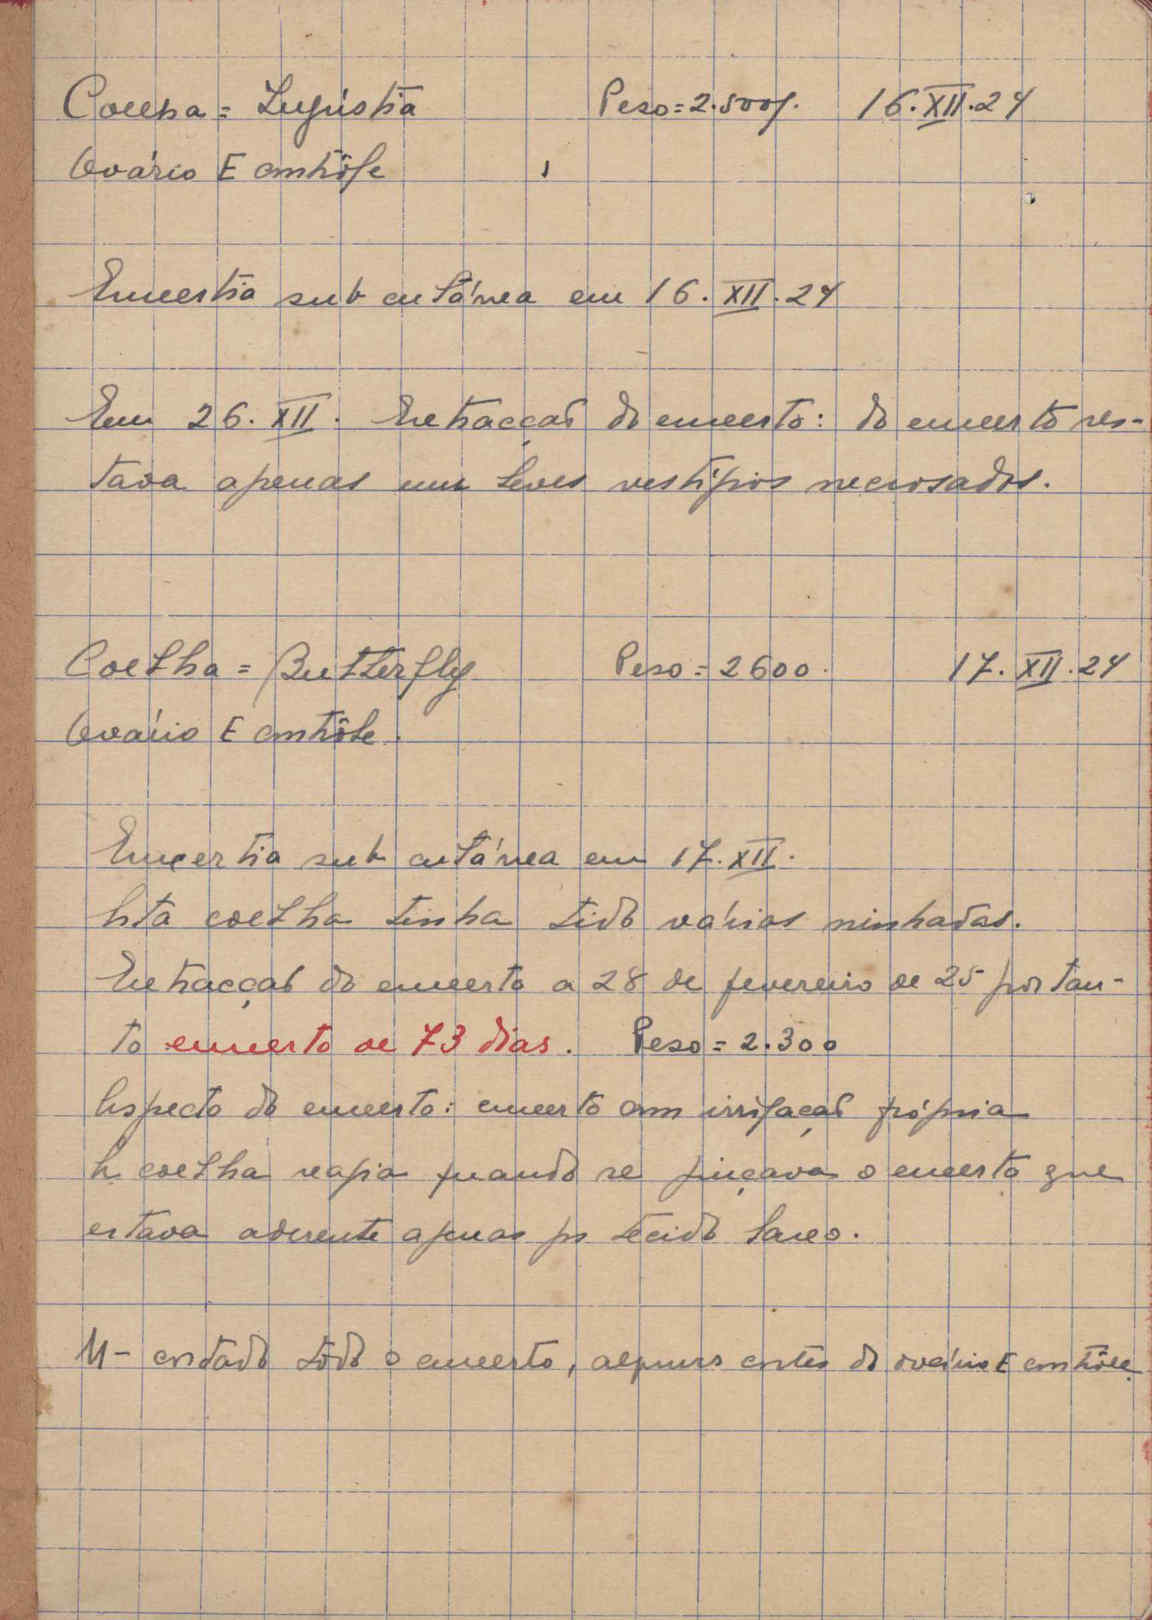 Coelha = Lupistia Peso = 2.500g. 16.XII.24
Ovário E contrôle
Enxertia sub cutânea em 16.XII.24
Em 26.XII. Extracção do enxerto: do enxerto res-
tava apenas uns leves vestígios necrosados.
Coelha = Butterfly Peso = 2600. 17.XII.24
Ovário E contrôle.
Enxertia sub cutânea em 17.XII.
Esta coelha tinha tido várias ninhadas.
Extracção do enxerto a 28 de fevereiro de 25 portan-
to enxerto de 73 dias. Peso = 2.300
Aspecto do enxerto: enxerto com irrigação própria
A coelha reagia quando se pinçava o enxerto que
estava aderente apenas por tecido laxo.
M- cortado todo o enxerto, alguns cortes do ovário E contrôle.